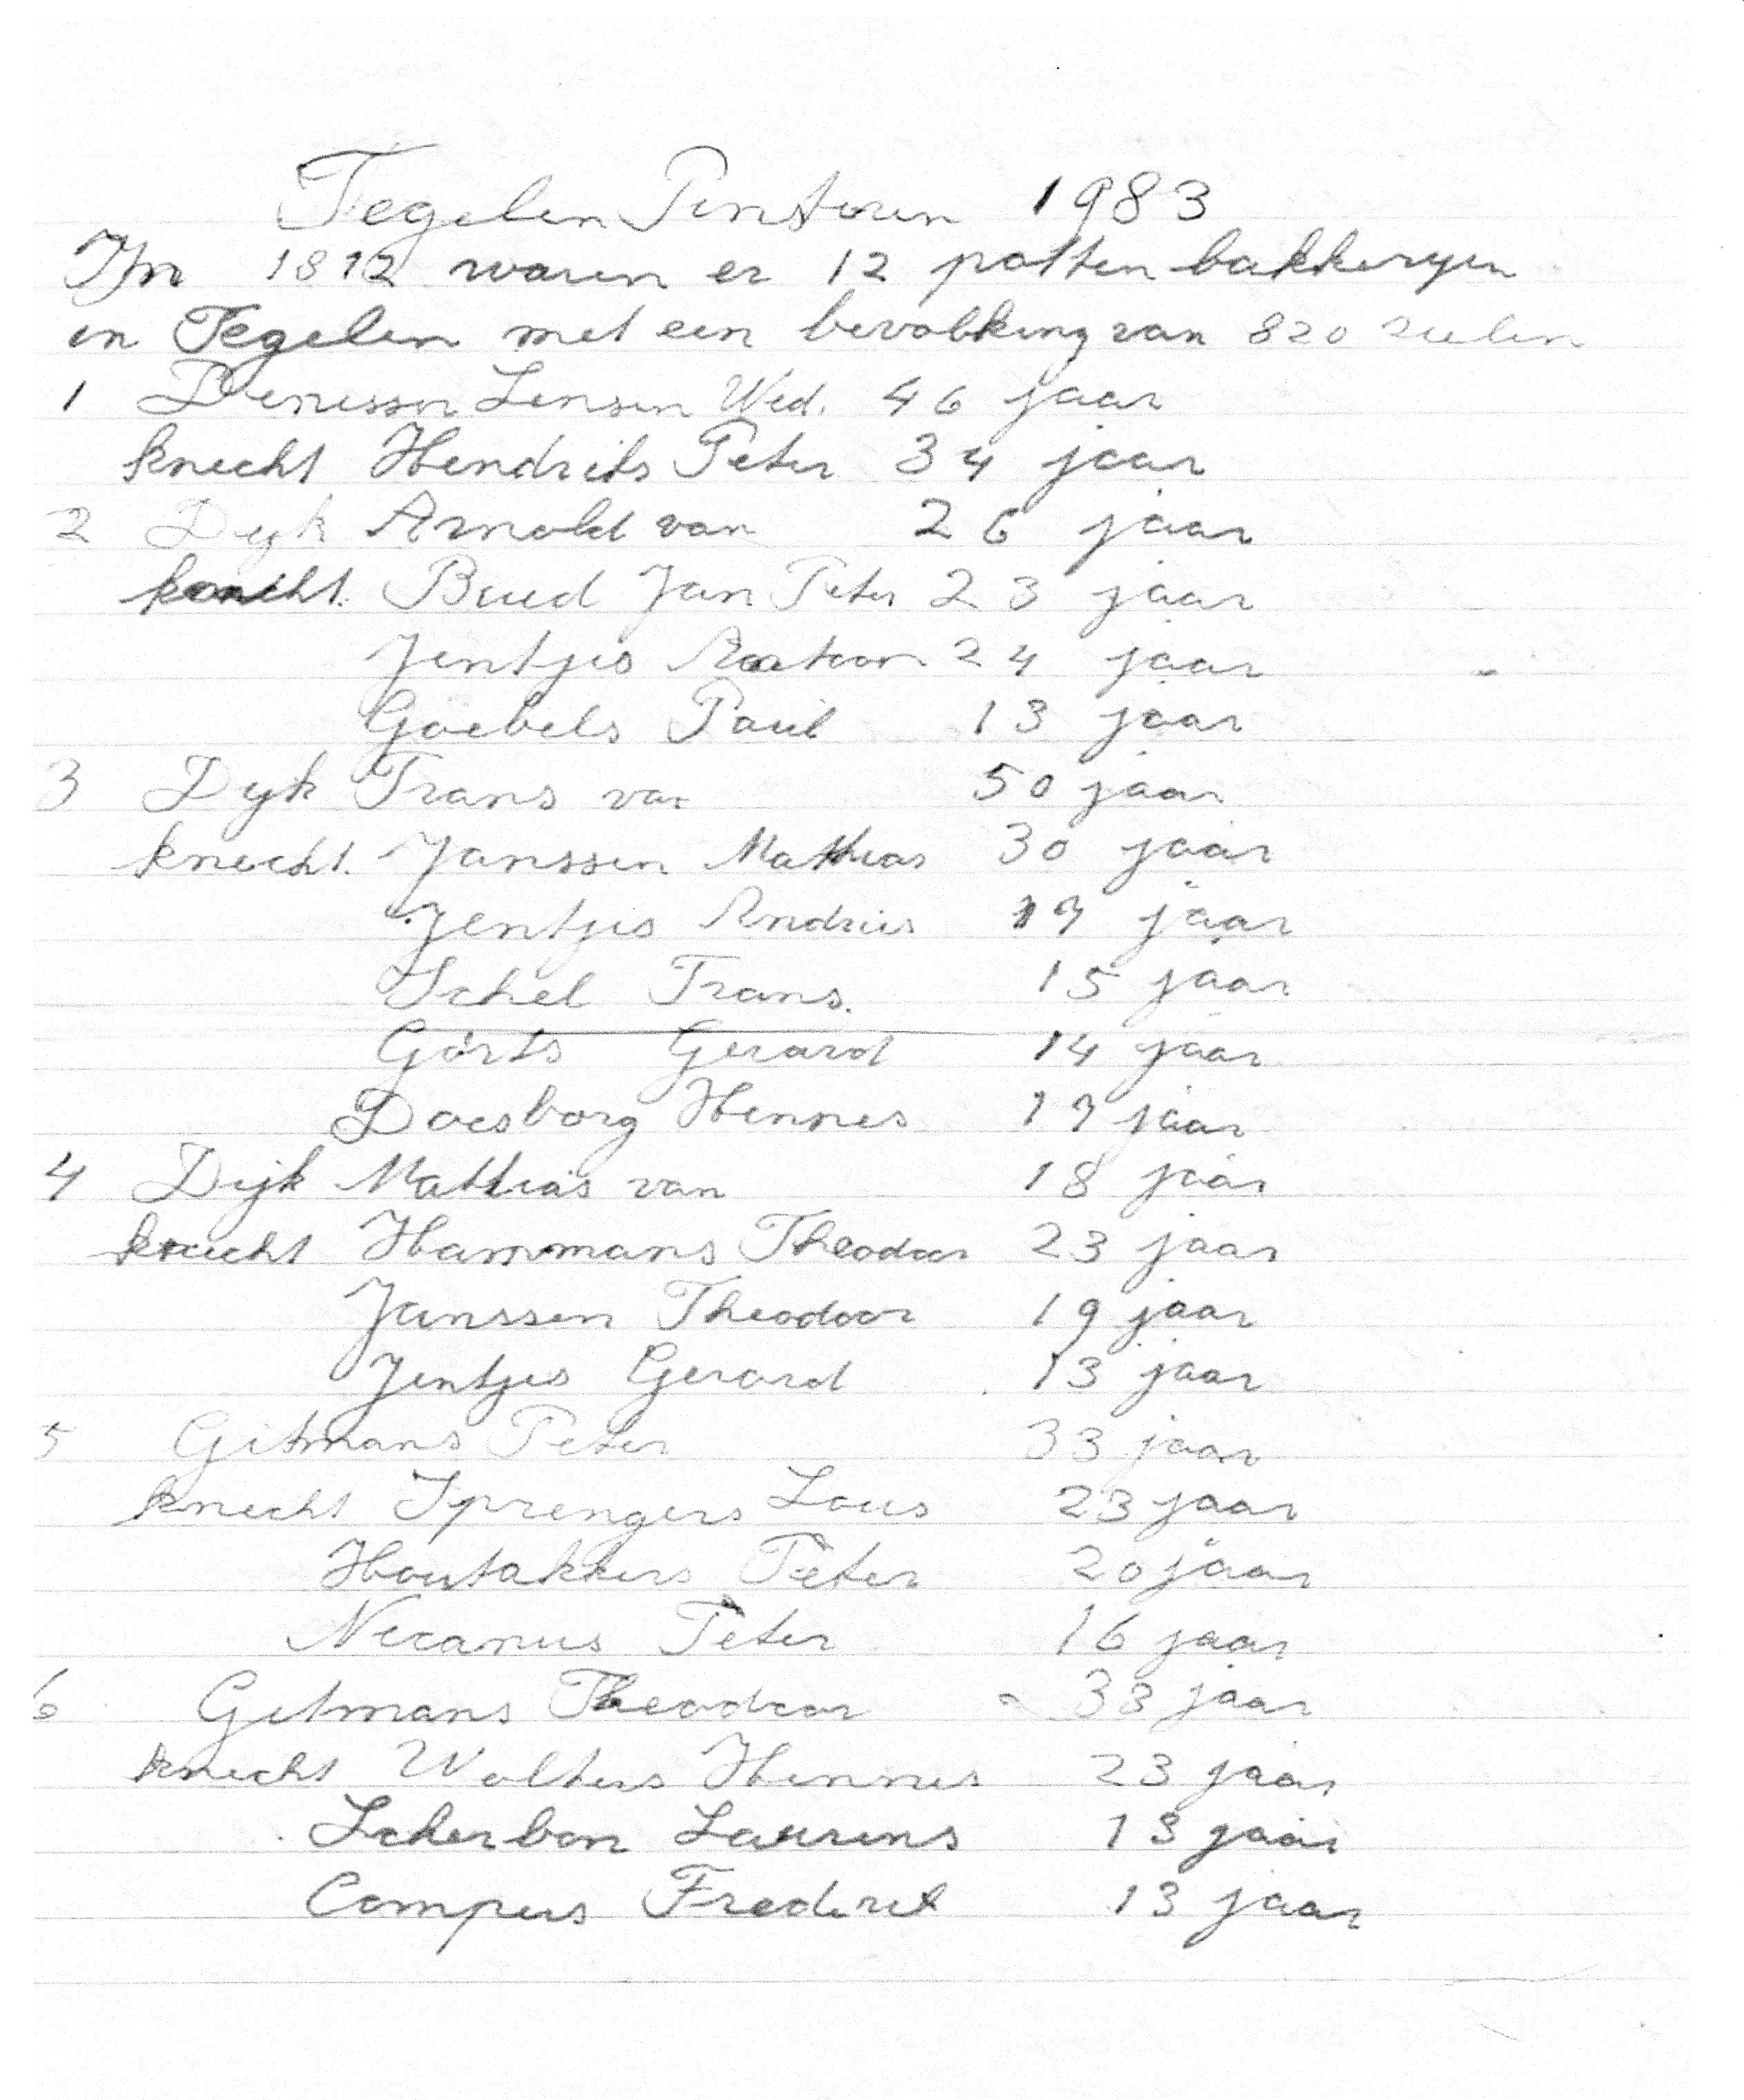 Tegelen Pinsteren 1983
In 1812 waren er 12 potten bakkeryen
in Tegelen met een bevolking van 820 zielen
1 Denessen Lensen Wed. 46 jaar
knecht Hendriks Peter 34 jaar
2 Dyk Arnold van 26 jaar
knecht. Bued Jan Peter 23 jaar
Jentjes 24 jaar
Goebels Paul 13 jaar
3 Dyk Frans van 50 jaar
knecht. Janssen Mathias 30 jaar
Jentjes Andries 17 jaar
Schel Frans. 15 jaar
Görts Gerard 14 jaar
Doesborg Hennes 17 jaar
4 Dijk Mathias van 18 jaar
knecht Hammans Theodoor 23 jaar
Janssen Theodoor 19 jaar
Jentjes Gerard 13 jaar
5 Gitmans Peter 33 jaar
knecht Sprengers Louis 23 jaar
Houtakkers Peter 20 jaar
Neranus Peter 16 jaar
6 Gitmans Theodoor 33 jaar
knecht Wolters Hennes 23 jaar
Scherbon Laurens 13 jaar
Compus Frederik 13 jaar